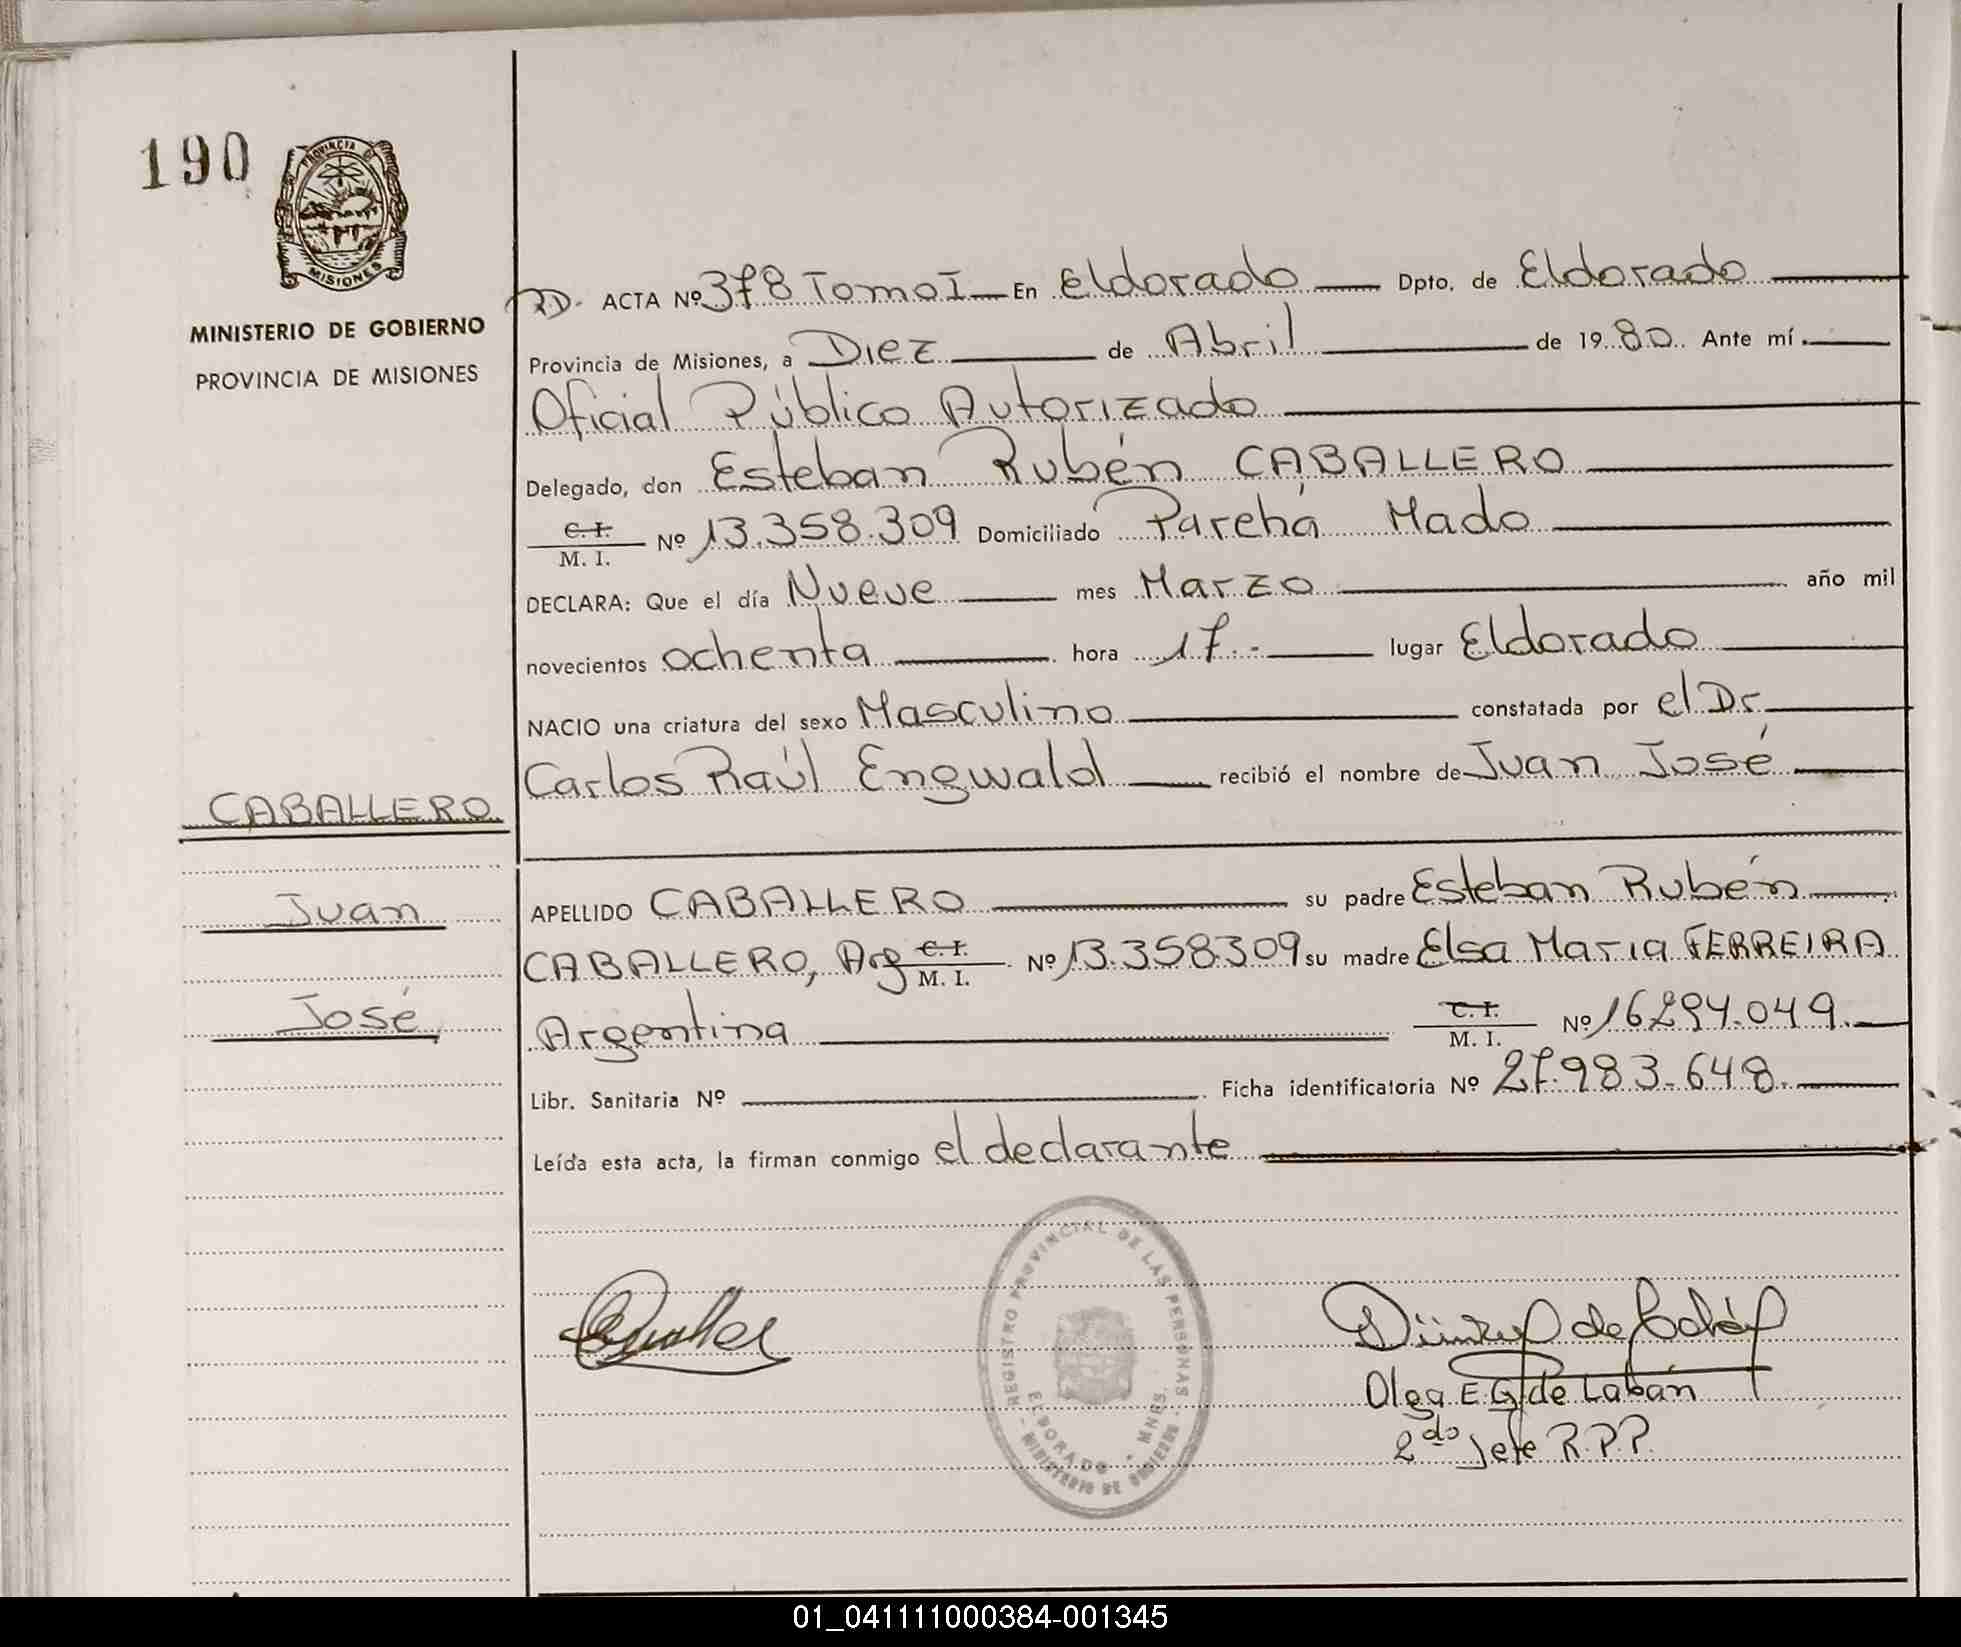 190
PROVINCIA DE
MISIONES
MINISTERIO DE GOBIERNO
PROVINCIA DE MISIONES
ACTA Nº 378 Tomo I En Eldorado Dpto. de Eldorado
Provincia de Misiones, a Diez de Abril de 1980 Ante mí
Oficial Público Autorizado
Delegado, don Esteban Rubén CABALLERO
C. I.
M. I. Nº 13.358.309 Domiciliado Parehá Mado
DECLARA: Que el día Nueve mes Marzo año mil
novecientos ochenta hora 17.- lugar Eldorado
NACIO una criatura del sexo Masculino constatada por el Dr.
Carlos Raúl Engwald recibió el nombre de Juan José
CABALLERO
Juan
José
APELLIDO CABALLERO su padre Esteban Rubén
CABALLERO, Arg C. I. M. I. Nº 13.358.309 su madre Elsa Maria FERREIRA
Argentina C. I. M. I. Nº 16294.049.
Libr. Sanitaria Nº Ficha identificatoria Nº 27.983.648.
Leída esta acta, la firman conmigo el declarante
REGISTRO PROVINCIAL DE LAS PERSONAS
ELDORADO - MNES.
MINISTERIO DE GOBIERNO
Olga E. G. de Labán
2do Jefe R.P.P.
01_041111000384-001345